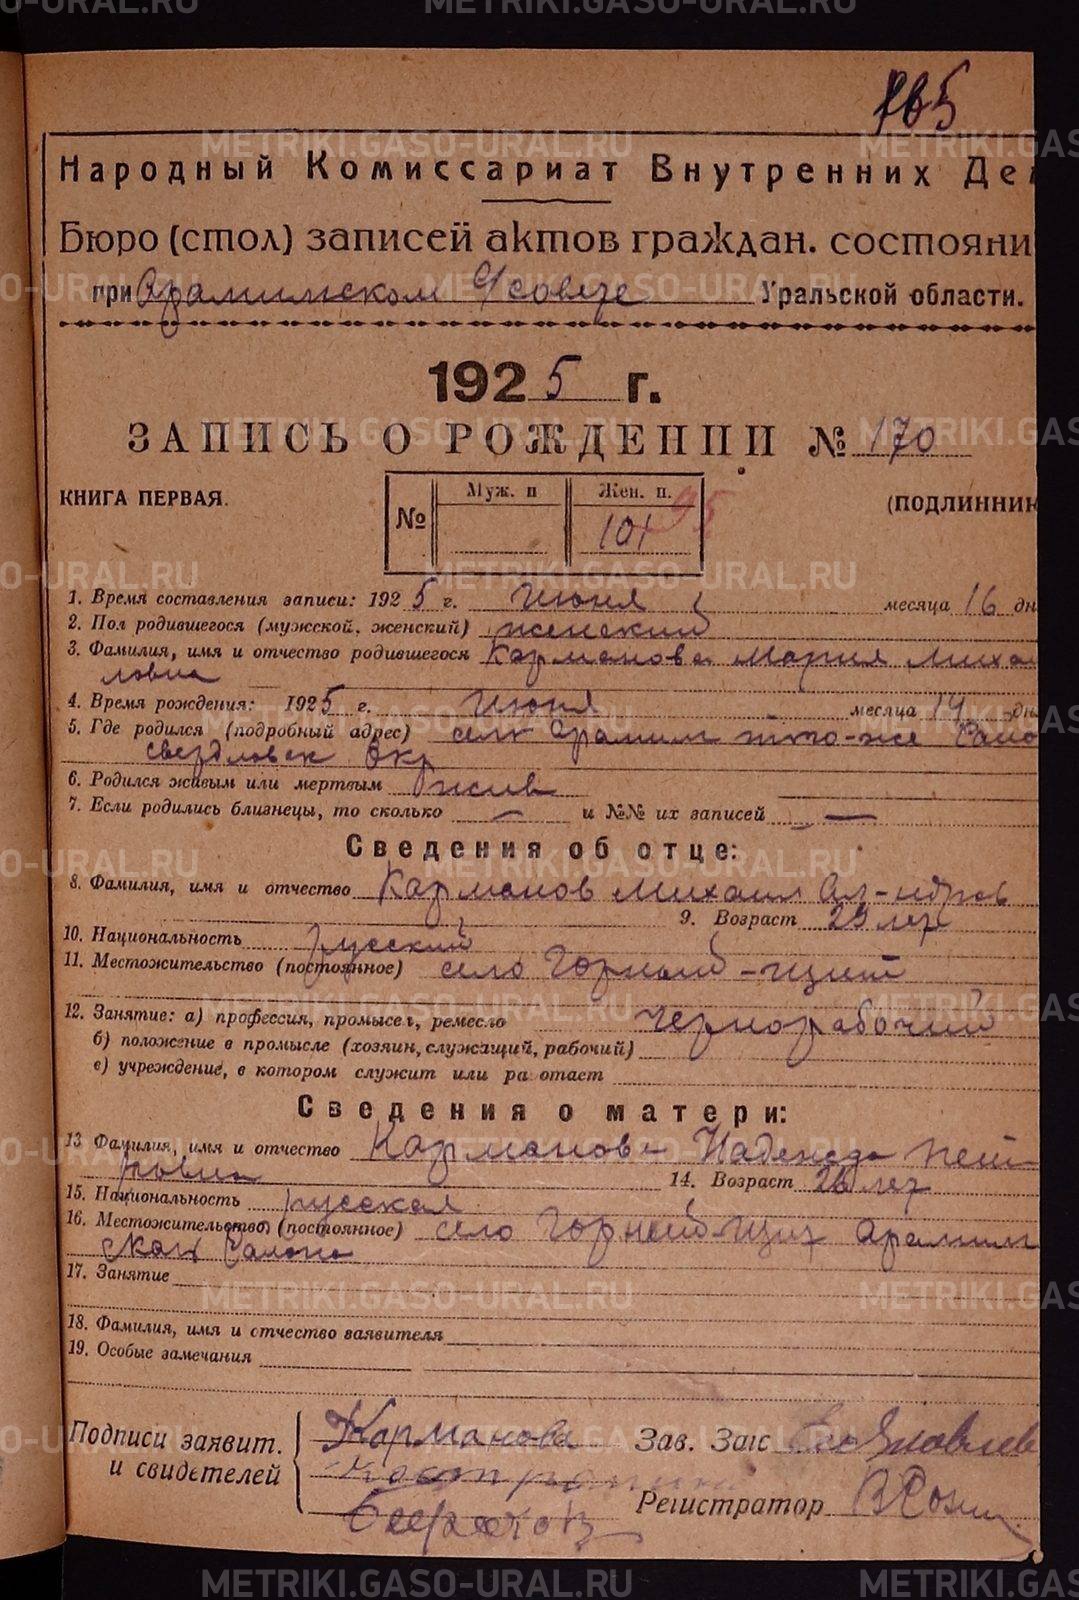 165
Народный Комиссариат Внутренних Дел
Бюро (стол) записей актов граждан. состояни
при Арамильском с/совете Уральской области.
1925 г.
ЗАПИСЬ О РОЖДЕНИИ № 170
КНИГА ПЕРВАЯ. (ПОДЛИННИК
№ Муж. п Жен. п.
101 95
1. Время составления записи: 1925 г. Июня месяца 16 дн
2. Пол родившегося (мужской, женский) женский
3. Фамилия, имя и отчество родившегося Карманова Мария Миха
ловна
4. Время рождения: 1925 г. Июня месяца 14 дн
5. Где родился (подробный адрес) село Арамиль того-же Райо
Свердловск Окр
6. Родился живым или мертвым жив
7. Если родились близнецы, то сколько — и №№ их записей —
Сведения об отце:
8. Фамилия, имя и отчество Карманов Михаил Ал-ндров
9. Возраст 29 лет
10. Национальность русский
11. Местожительство (постоянное) село Горный-щит
12. Занятие: а) профессия, промысел, ремесло чернорабочий
б) положение в промысле (хозяин, служащий, рабочий)
в) учреждение, в котором служит или ра отает
Сведения о матери:
13 Фамилия, имя и отчество Карманова Надежда Пет
ровна 14. Возраст 26 лет
15. Национальность русская
16. Местожительство (постоянное) село Горный-Щит Арамил
ская Района
17. Занятие
18. Фамилия, имя и отчество заявителя
19. Особые замечания
Подписи заявит. и свидетелей
Карманова
Зав. Загс Яковлев
Регистратор
METRIKI.GASO-URAL.RU